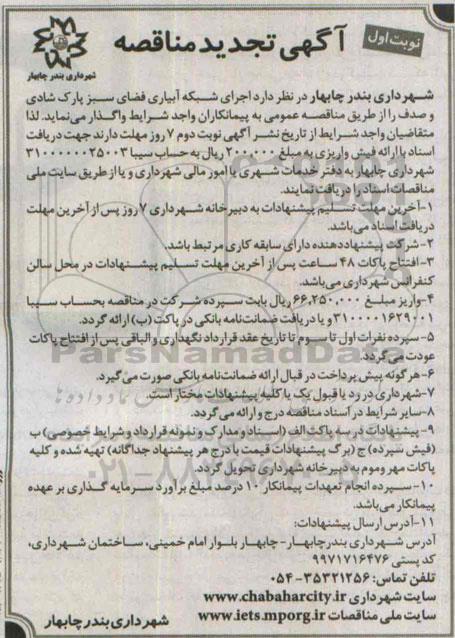 نوبت اول
آگهی تجدید مناقصه
شهرداری بندر چابهار
شهرداری بندر چابهار در نظر دارد اجرای شبکه آبیاری فضای سبز پارک شادی
و صدف را از طریق مناقصه عمومی به پیمانکاران واجد شرایط واگذار می‌نماید. لذا
متقاضیان واجد شرایط از تاریخ نشر آگهی نوبت دوم ۷ روز مهلت دارند جهت دریافت
اسناد با ارائه فیش واریزی به مبلغ ۲۰۰,۰۰۰ ریال به حساب سیبا ۳۱۰۰۰۰۰۰۲۵۰۰۳
شهرداری چابهار به دفتر خدمات شهری یا امور مالی شهرداری و یا از طریق سایت ملی
مناقصات اسناد را دریافت نمایند.
۱-آخرین مهلت تسلیم پیشنهادات به دبیرخانه شهرداری ۷ روز پس از آخرین مهلت
دریافت اسناد می‌باشد.
۲- شرکت پیشنهاددهنده دارای سابقه کاری مرتبط باشد.
۳-افتتاح پاکات ۴۸ ساعت پس از آخرین مهلت تسلیم پیشنهادات در محل سالن
کنفرانس شهرداری می‌باشد.
۴-واریز مبلغ ۶۶,۲۵۰,۰۰۰ ریال بابت سپرده شرکت در مناقصه بحساب سیبا
۳۱۰۰۰۰۱۶۲۹۰۰۱ و یا دریافت ضمانت‌نامه بانکی در پاکت (ب) ارائه گردد.
۵-سپرده نفرات اول تا سوم تا تاریخ عقد قرارداد نگهداری و الباقی پس از افتتاح پاکات
عودت می گردد.
۶-هرگونه پیش پرداخت در قبال ارائه ضمانت‌نامه بانکی صورت می‌گیرد.
۷-شهرداری در رد یا قبول یک یا کلیه پیشنهادات مختار است.
۸-سایر شرایط در اسناد مناقصه درج و ارائه می‌گردد.
۹- پیشنهادات در سه پاکت الف (اسناد و مدارک و نمونه قرارداد و شرایط خصوصی) ب
(فیش سپرده) ج (برگ پیشنهادات قیمت با درج هر پیشنهاد جداگانه) تهیه شده و کلیه
پاکات مهر و موم به دبیرخانه شهرداری تحویل گردد.
۱۰-سپرده انجام تعهدات پیمانکار ۱۰ درصد مبلغ برآورد سرمایه گذاری بر عهده
پیمانکار می‌باشد.
۱۱-آدرس ارسال پیشنهادات:
آدرس شهرداری بندرچابهار- چابهار بلوار امام خمینی، ساختمان شهرداری،
کد پستی ۹۹۷۱۷۱۶۴۷۶
تلفن تماس: ۳۵۳۲۱۲۵۶-۰۵۴
سایت شهرداری www.chabaharcity.ir
سایت ملی مناقصات www.iets.mporg.ir
شهرداری بندر چابهار
ParsNamadData